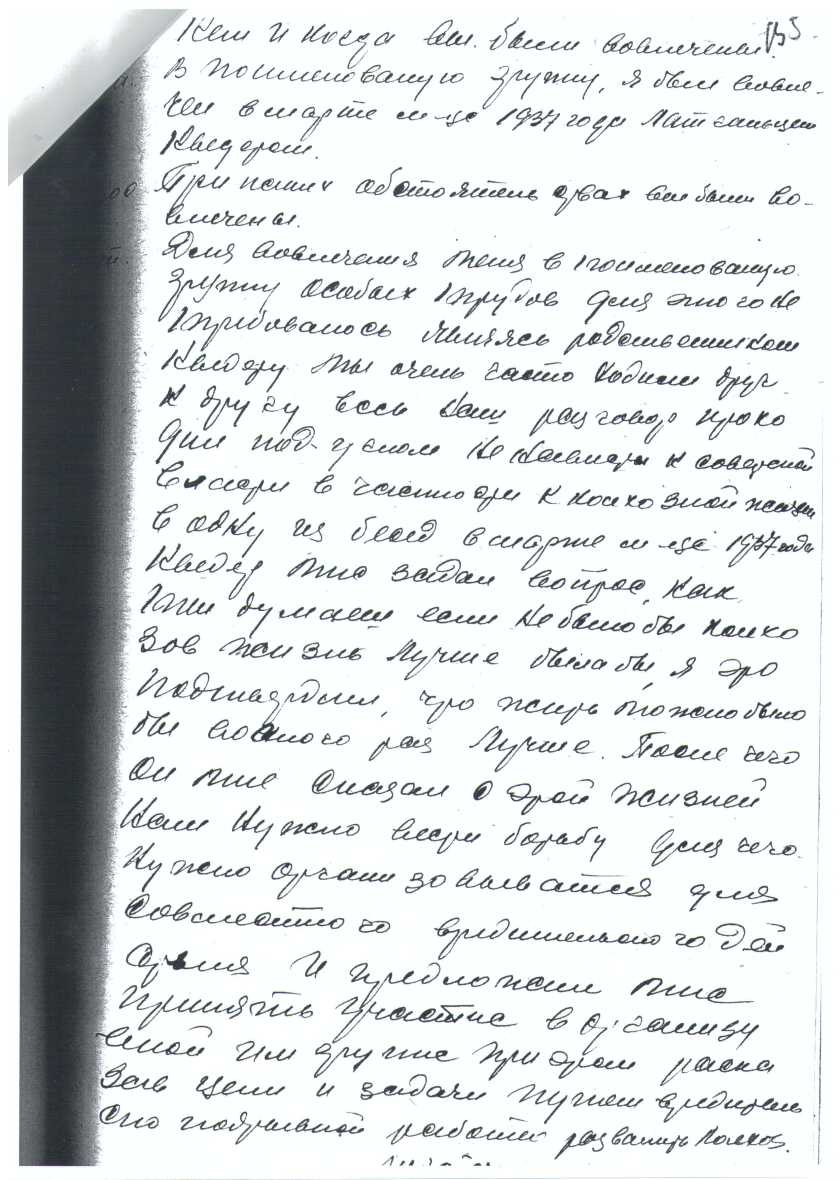 Кем и когда вы были вовлечены. 135
В поименованую групу, я был вовле-
чен в марте м-це 1937 года
Кведером.
При каких обстоятельствах вы были во-
влечены.
Для вовлечения меня в поименованую
групу особых трудов для этого не
требовалось являясь родственником
Кведеру мы очень часто ходили друг
к другу весь наш разговор прохо
дил под углом не к советской
власти в частности к колхозной жизни
в одну из бесед в марте м-це 1937 года
Кведер мне задал вопрос, как
ты думаеш если не было бы колхо
зов жизнь лучше была бы, я это
подтвердил, что жить можно было
бы во много раз лучше. После чего
он мне сказал с этой жизней
нам нужно вести борьбу для чего
нужно организовыватся для
совместного вредительского дей
ствия и предложил мне
принять участие в организу
емой им групе при этом раска
зав цели и задачи путем вредитель
ско подрывной работы развалить колхоз.